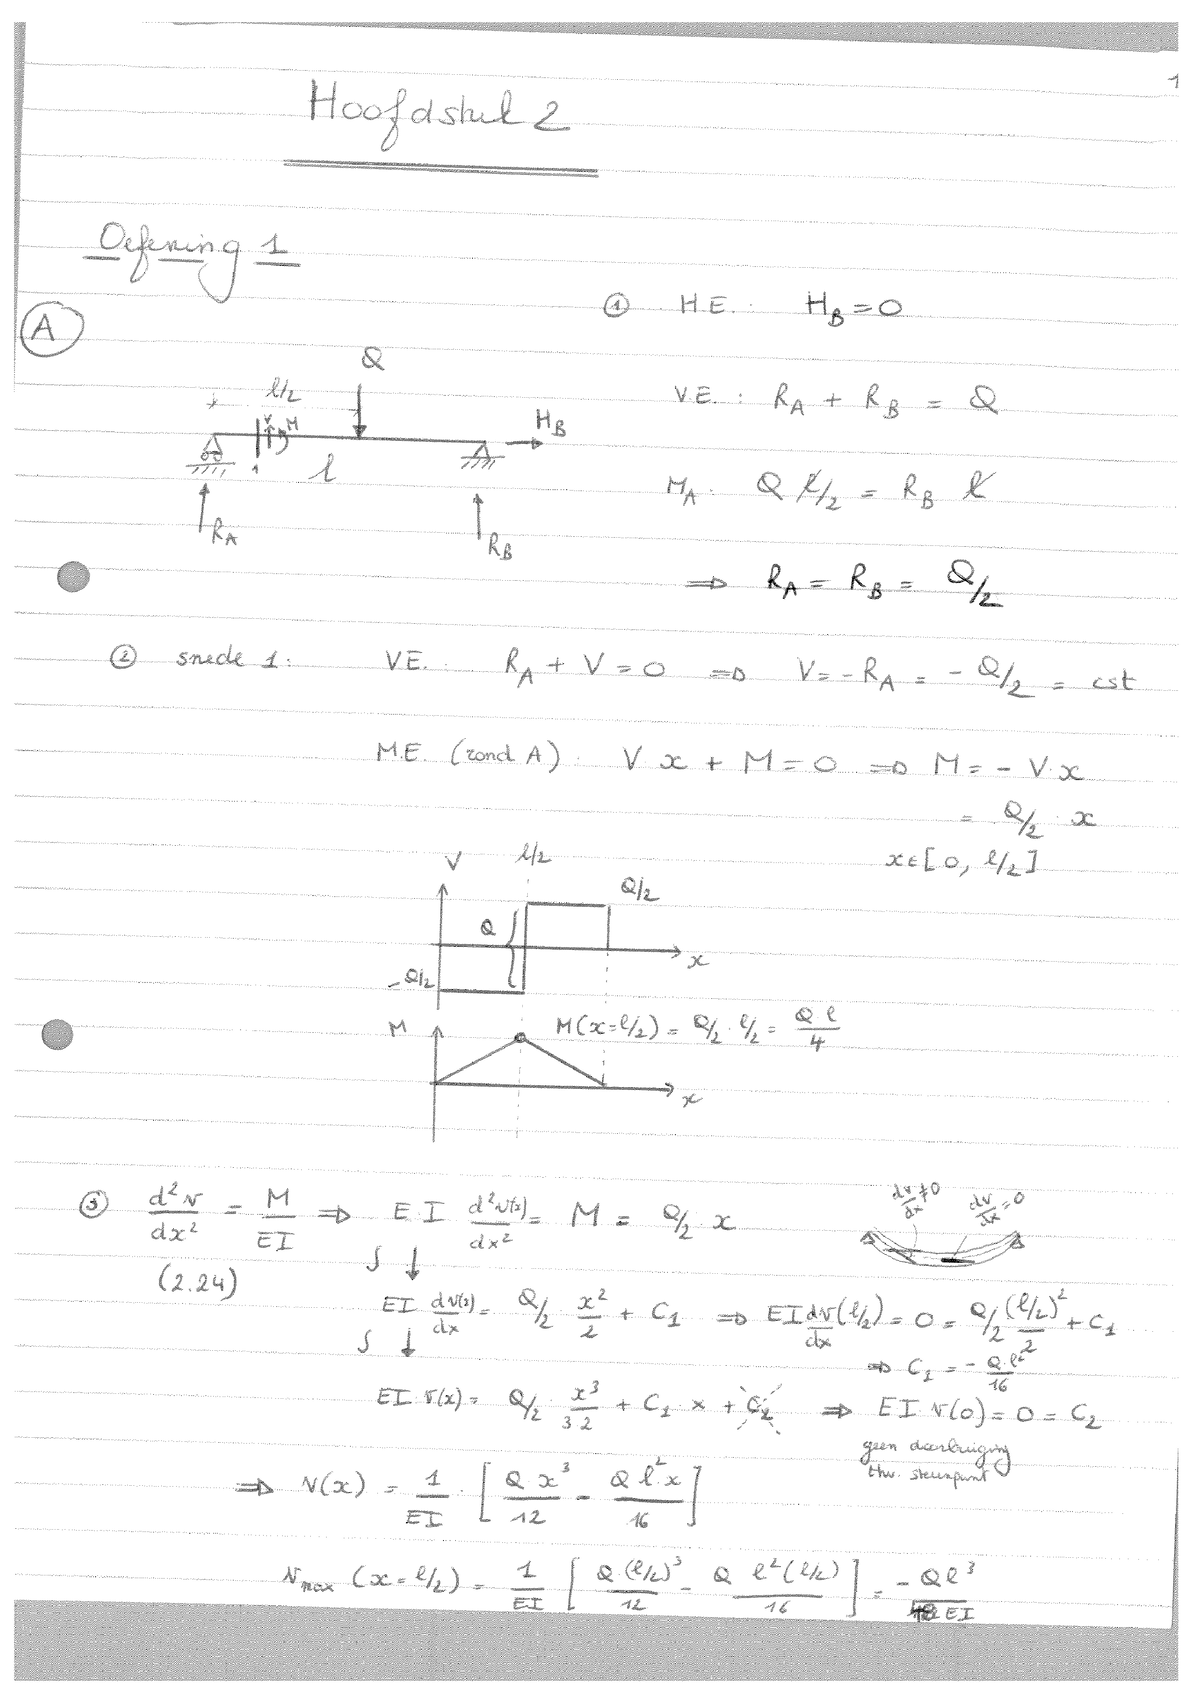 1
Hoofdstuk 2
Oefening 1
① H.E. : H_B = 0
A
Q
l/2
V.E. : R_A + R_B = Q
V M
H_B
1
l
M_A : Q l/2 = R_B l
R_A
R_B
⇒ R_A = R_B = Q/2
② snede 1: VE. R_A + V = 0 ⇒ V = - R_A = - Q/2 = cst
M.E. (rond A) : V x + M = 0 ⇒ M = - V·x
= Q/2 · x
x ∈ [0, l/2]
V l/2
Q/2
Q
x
- Q/2
M M(x=l/2) = Q/2 · l/2 = Q l / 4
x
③ d²v/dx² = M/EI ⇒ E I d²v(x)/dx² = M = Q/2 x
dv/dx ≠ 0 dv/dx = 0
(2.24)
∫ ↓
EI dv(x)/dx = Q/2 x²/2 + C₁ ⇒ EI dv/dx (l/2) = 0 = Q/2 (l/2)²/2 + C₁
∫ ↓
⇒ C₁ = - Q·l²/16
EI v(x) = Q/2 · x³/3 2 + C₁ x + C₂ ⇒ EI v(0) = 0 = C₂
geen doorbuiging
thv. steunpunt
⇒ v(x) = 1/EI · [Q x³/12 - Q l² x/16]
v_max (x = l/2) = 1/EI [Q (l/2)³/12 - Q l² (l/2)/16] = - Q l³/48 EI